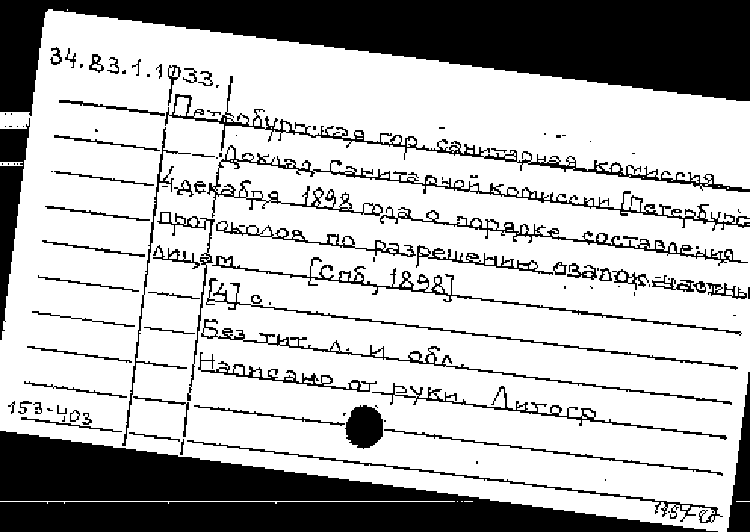 34.83.1.1033.
Петербургская гор. санитарная комиссия.
Доклад Санитарной комиссии [Петербург
4 декабря 1898 года о порядке составления
протоколов по разрешению свалок частны
лицам. [Спб., 1898]
[4] с.
Без тит. л. и обл.
Написано от руки. Литогр.
153-403